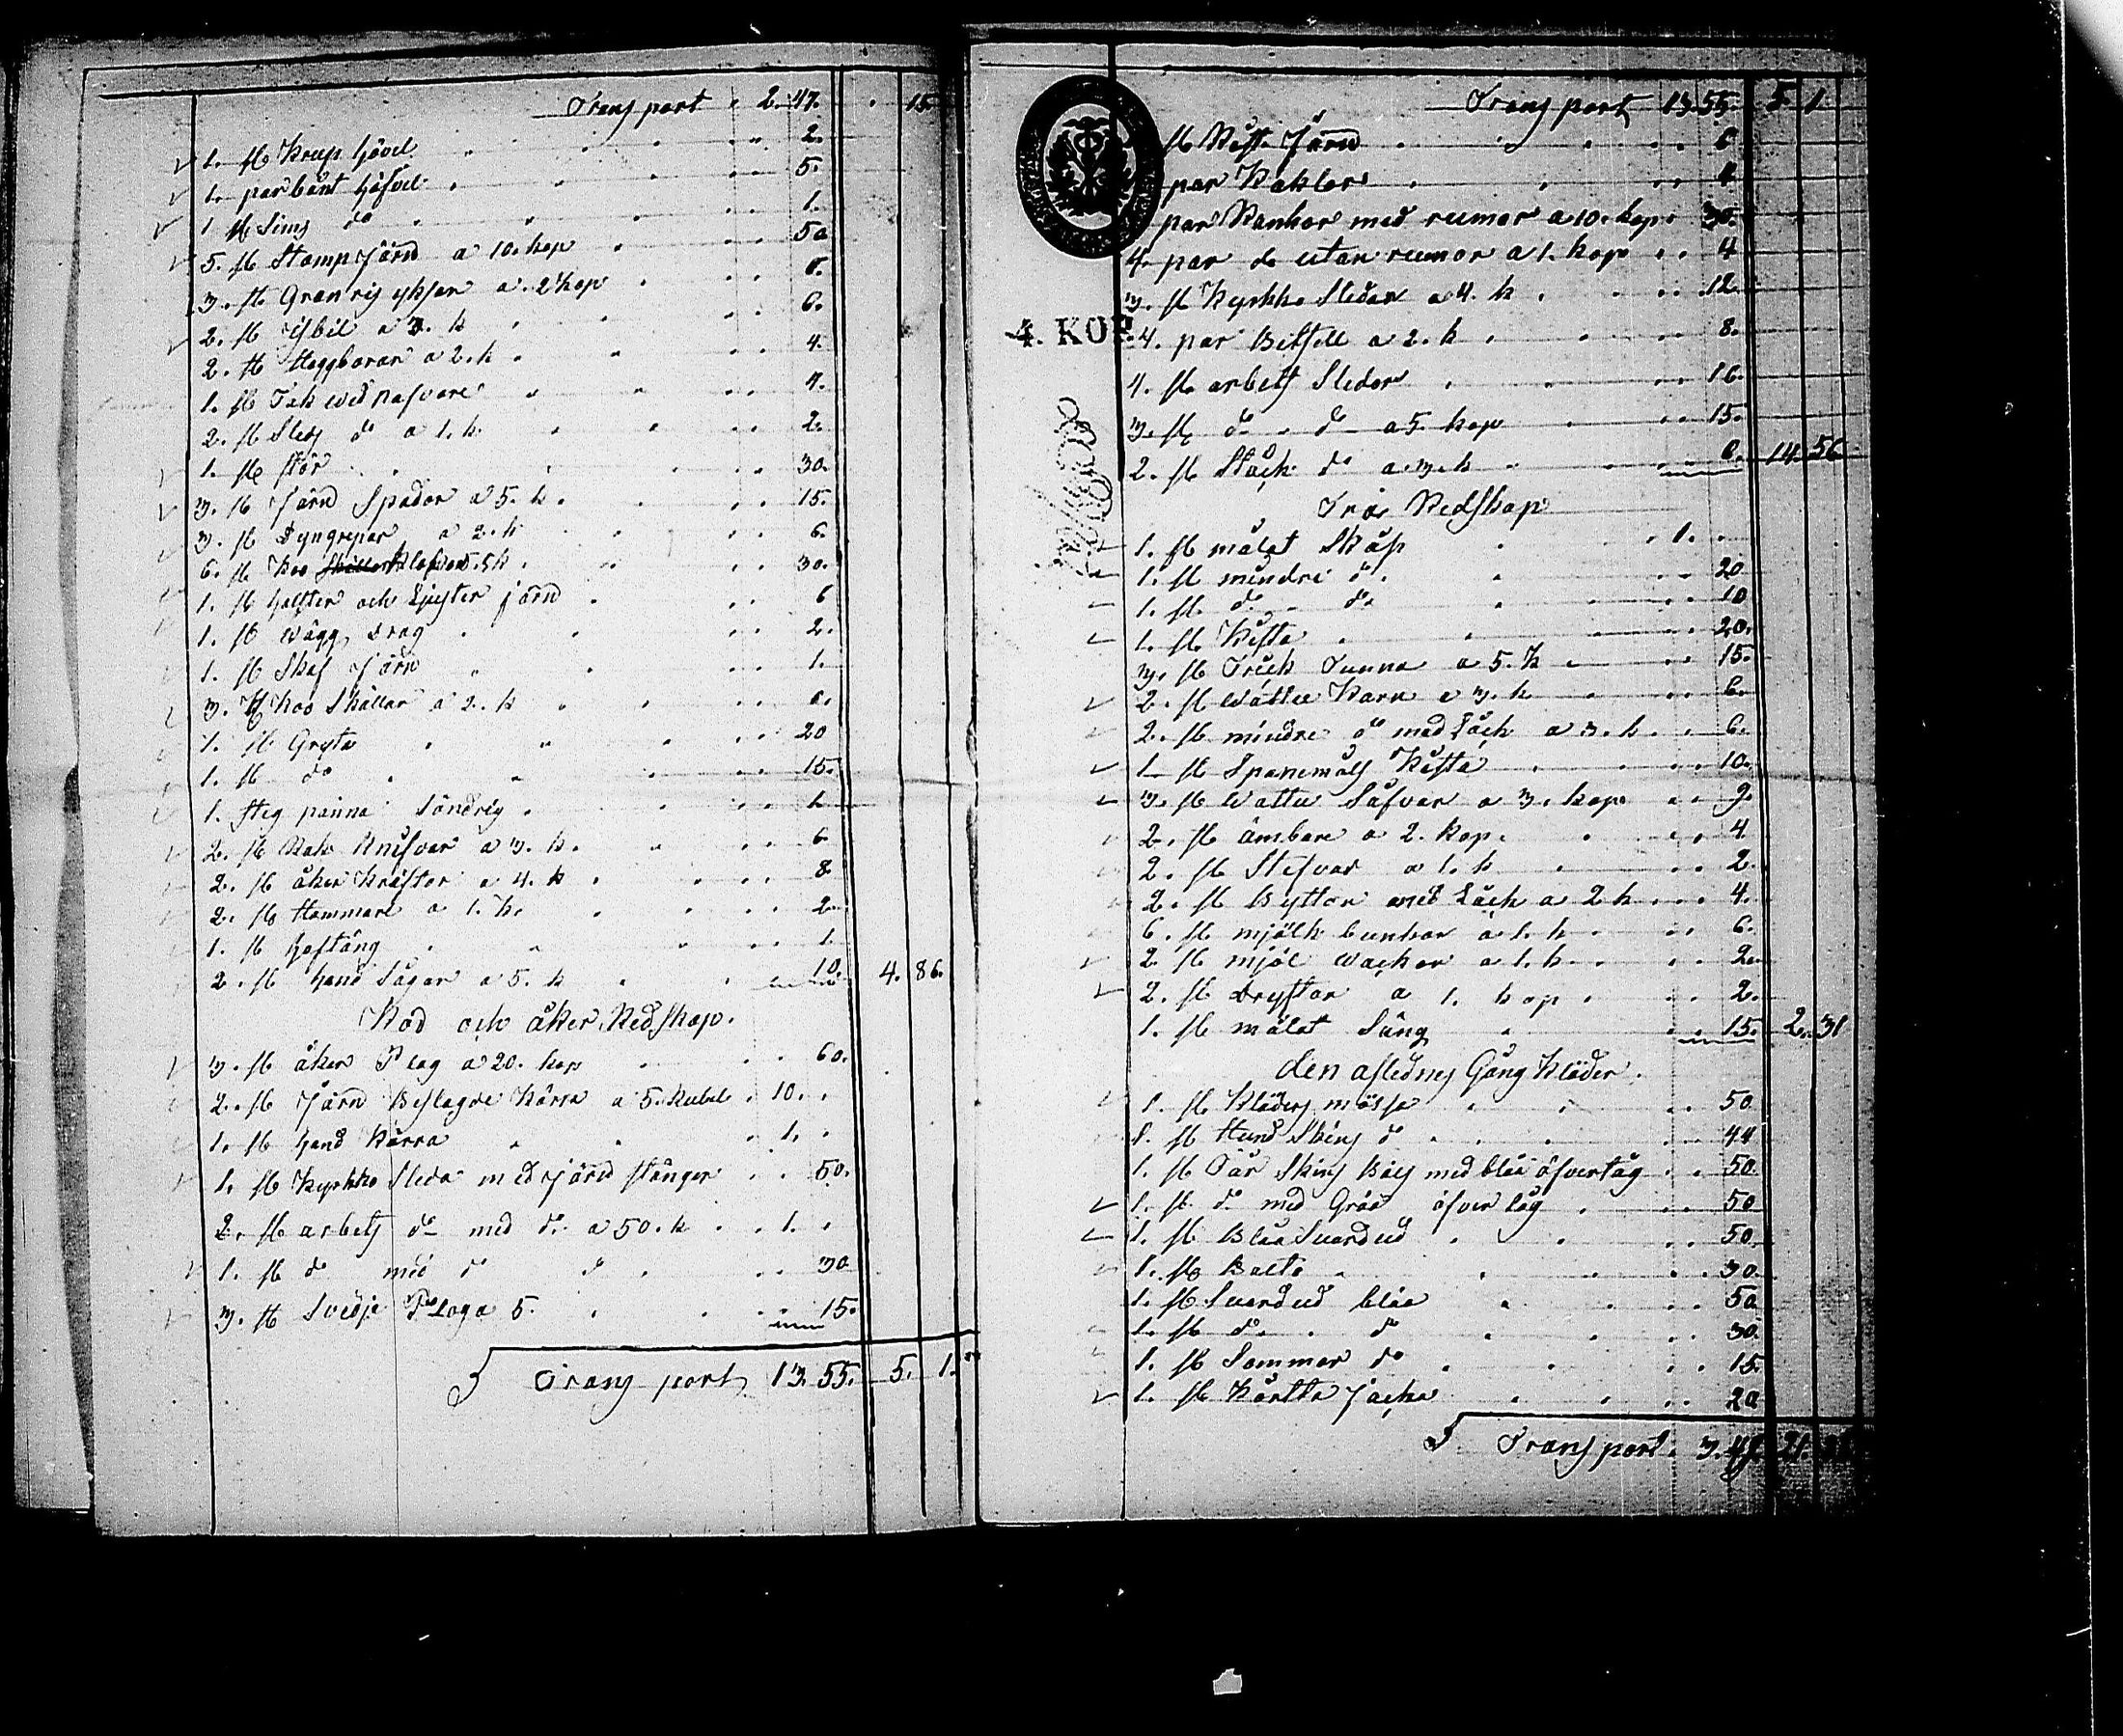 Transport . 2. 47. . 15.
1. st Krup Hövel 2.
1. par bånt Höfvel 5.
1 st Sims do 1.
5. st Stamp Järn a 10. kop 50
3. st Granris yksar a. 2 kop 6.
2. st isbil a 3. k 6.
2. st Heggborar a 2. k 4.
1. st Tak wed nafvare 4.
2. st Sleds do a 1. k. 2.
1. st stör 30.
3. st Järn Spador a 5. k. 15.
3. st Dyngrepar a 2. k 6.
6. st Koo Klafvar 5 k 30.
1. st Halster och Liuster järn 6
1. st Wägg Drag 2.
1. st Skaf Järn 1.
3. st Koo Skällar a 2. k 6.
1. st Gryta 20
1. st do 15.
1. steg panna Söndrig 1.
2. st Rak Knifvar a 3. k. 6.
2. st åker Kräftor a 4. k 8.
2. st Hammare a 1. k. 2.
1. st Hoftång 1.
2. st Hand Sågar a 5. k 10. 4. 86.
och åker Redskap.
3. st åker Plog a 20. kop 60.
2. st Järn Beslagde Kärra a 5. Rubel 10. .
1. st Hand Kärra 1. .
1. st Kyrkko Sleda med järn stänger 50.
2. st arbets do med do a 50. k 1. .
1. st do med do 30
3. st Svedje Ploga 5. 15.
Transport 13. 55. 5. 1.
Transport 13. 55. 5. 1.
st Järn 6
par Kaklor 4
par Rankor med rumor a 10. kop 30.
4. par do utan rumor a 1. kop 4
3. st Kyrkko Sledar a 4. k 12.
4. KOP.
4. par Betsell a 2. k 8.
4. st arbets Sledor 16.
3. st do do a 5. kop 15.
2. st Stäck do a 3. k 6. 14. 56
Trä Redskap
1. st målat Skåp 1. .
1. st mindre do. 20
1. st. do do 10
1. st. Kista 20.
3. st Trick Tunna a 5. k 15.
2. st Wattu Karn a 3. k 6.
2. st mindre do med Låck a 3. k. 6.
1 st Spanemåls Kista 10.
3. st Wattu Såfvar a 3. kop 9.
2. st ämbare a 2. kop. 4.
2. st Stefvar a 1. k 2.
2. st Byttor med Låck a 2 k 4.
6. st mjölk bunkar a 1. k 6.
2 st mjöl wackor a 1. k. 2.
2. st Dryftor a 1. kop 2.
1. st målat Säng 15. 2. 31
den aflednes Gång Kläder.
1. st Klädes mössa 50
1. st Hund Skins do 44
1. st Får Skins Päls med blåa öfvertåg 50
1. st do med Gråa öfvertåg 50
1. st Blåa Suardud 50.
1. st Bälte 30.
1. st Suardud blåa 50
1. st do do 30.
1. st Sommar do 15.
1. st Kårtta Jacka 20
Transport. 3. 21.